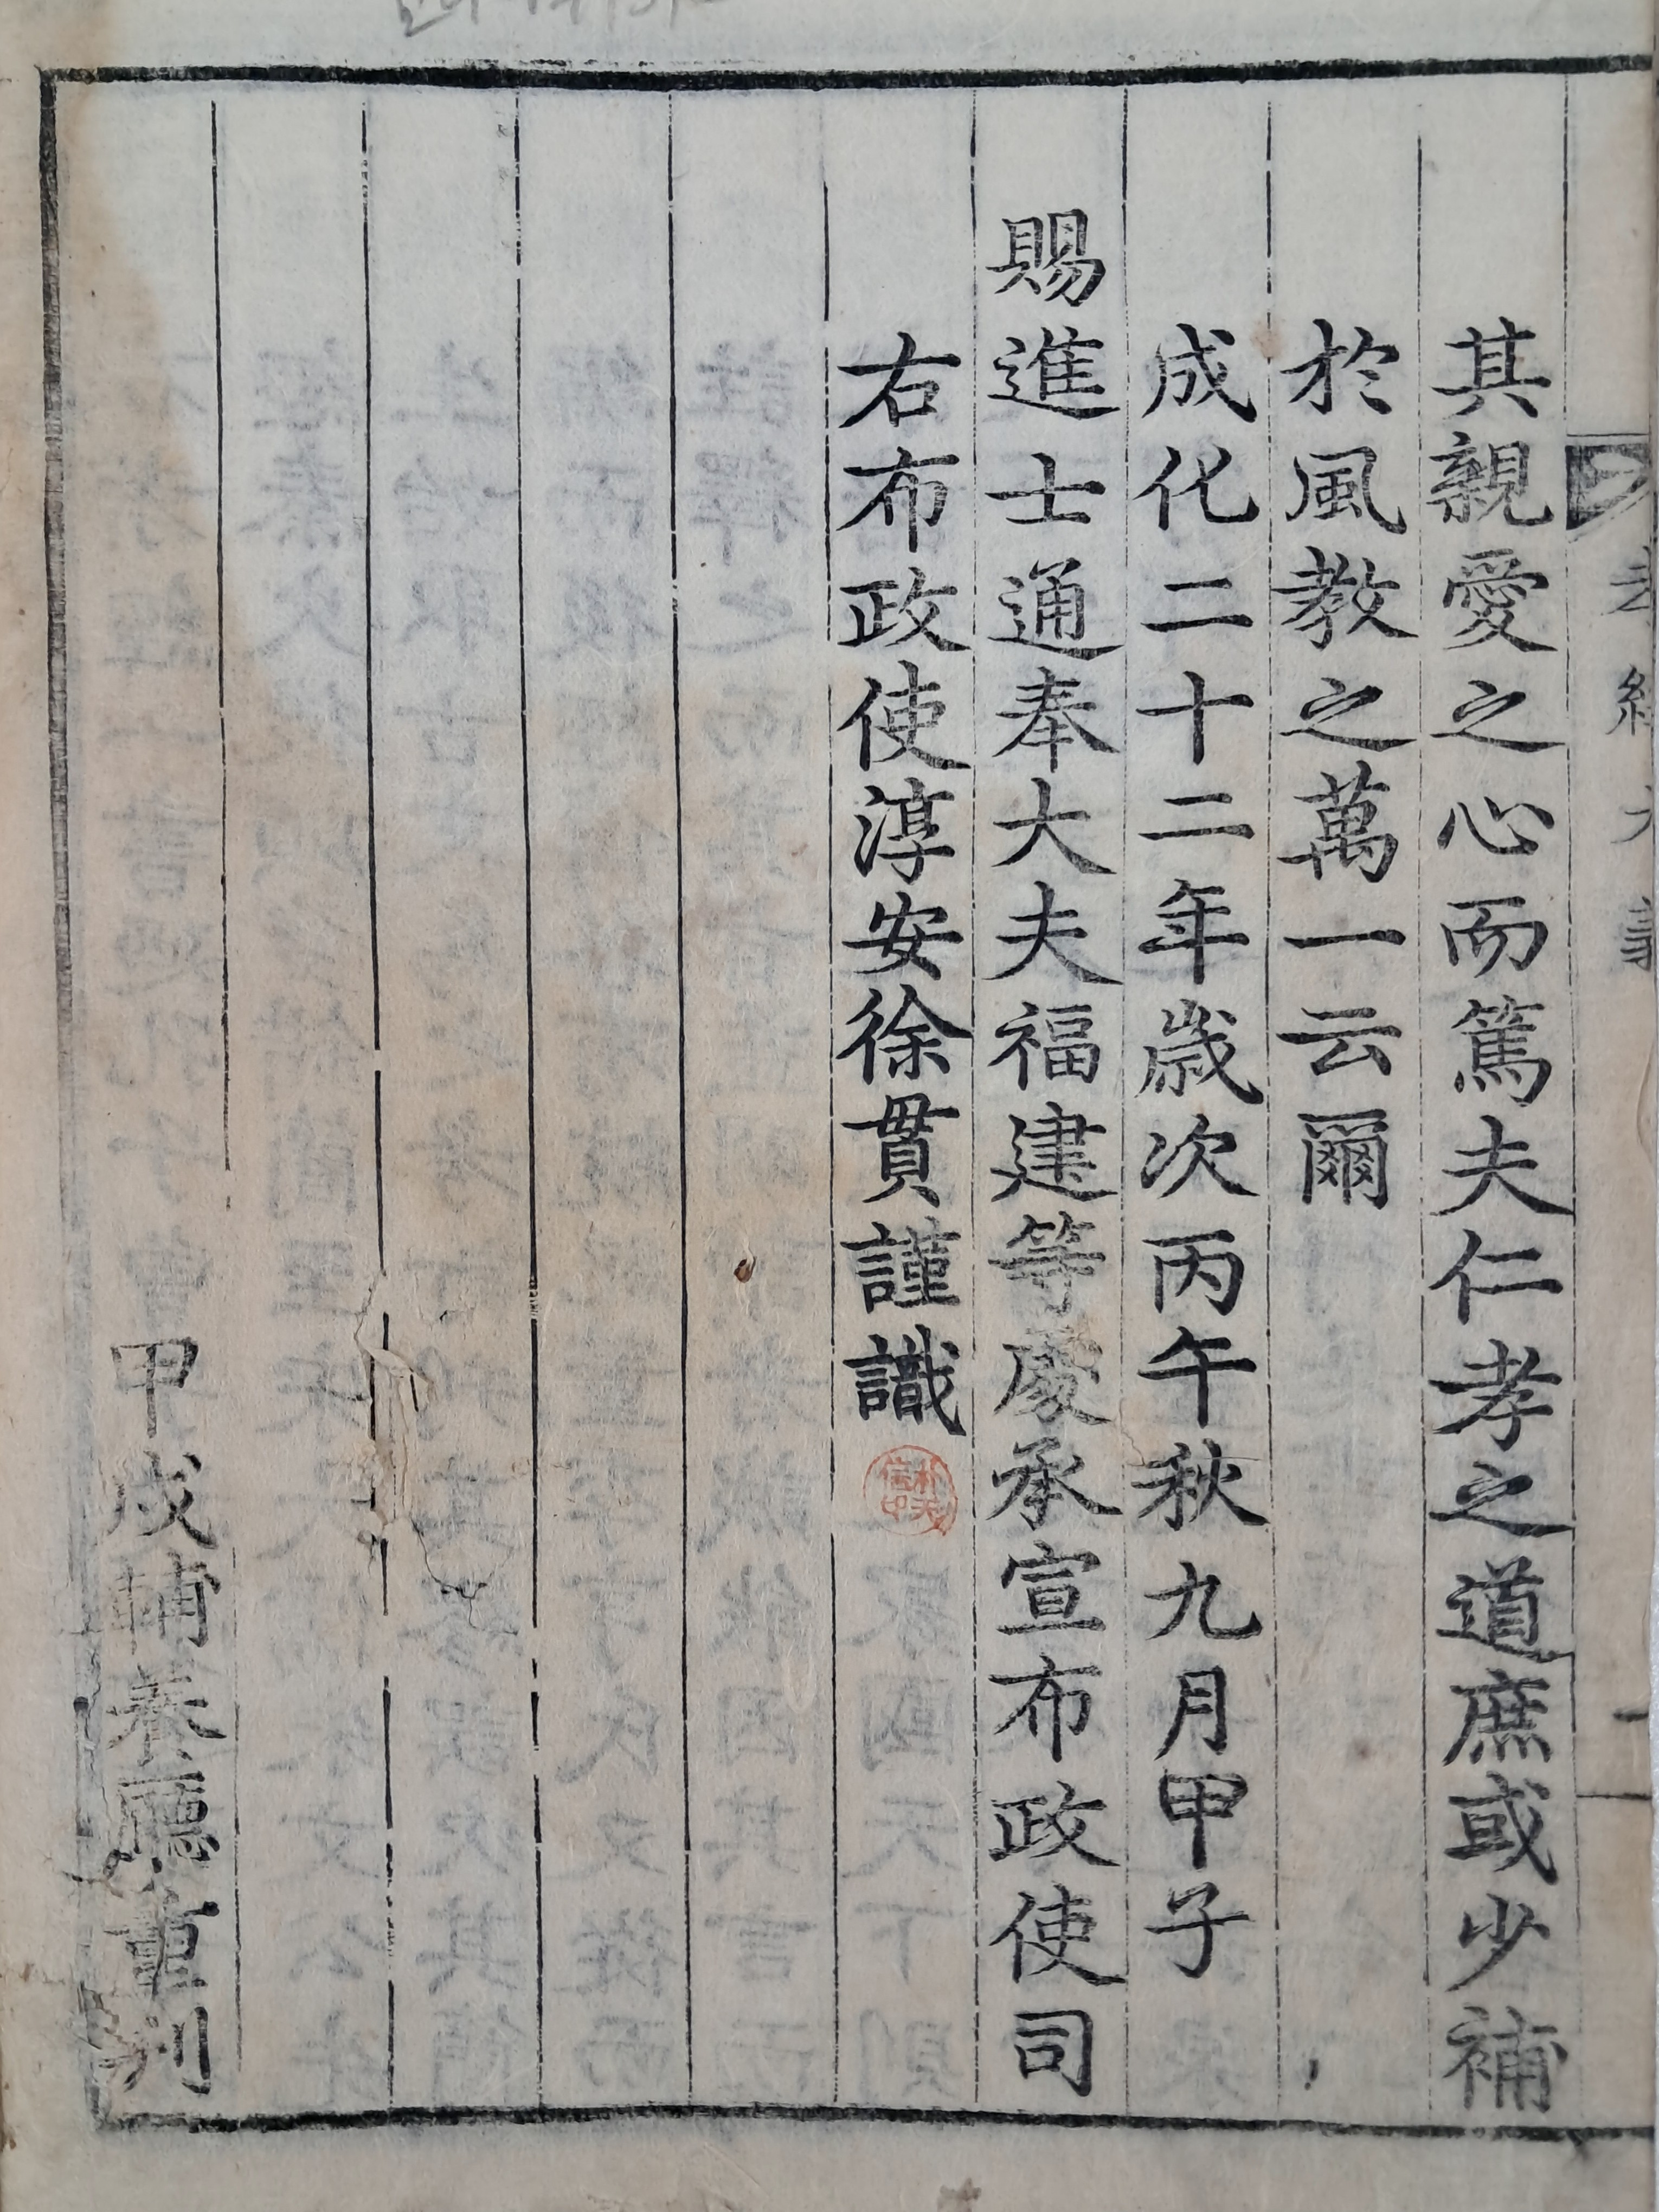 孝經大義
其親愛之心而篤夫仁孝之道庶或少補
於風教之萬一云爾
成化二十二年歲次丙午秋九月甲子
賜進士通奉大夫福建等處承宣布政使司
右布政使淳安徐貫謹識
甲戌輔養廳重刊